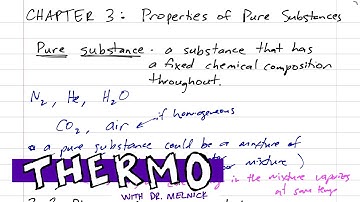 CHAPTER 3: Properties of Pure Substances
Pure substance - a substance that has
a fixed chemical composition
throughout.
N2, He, H2O
CO2, air if homogeneous
* a pure substance could be a mixture of
mixture )
in the mixture vaporizes
at same temp
THERMO
WITH DR. MELNICK